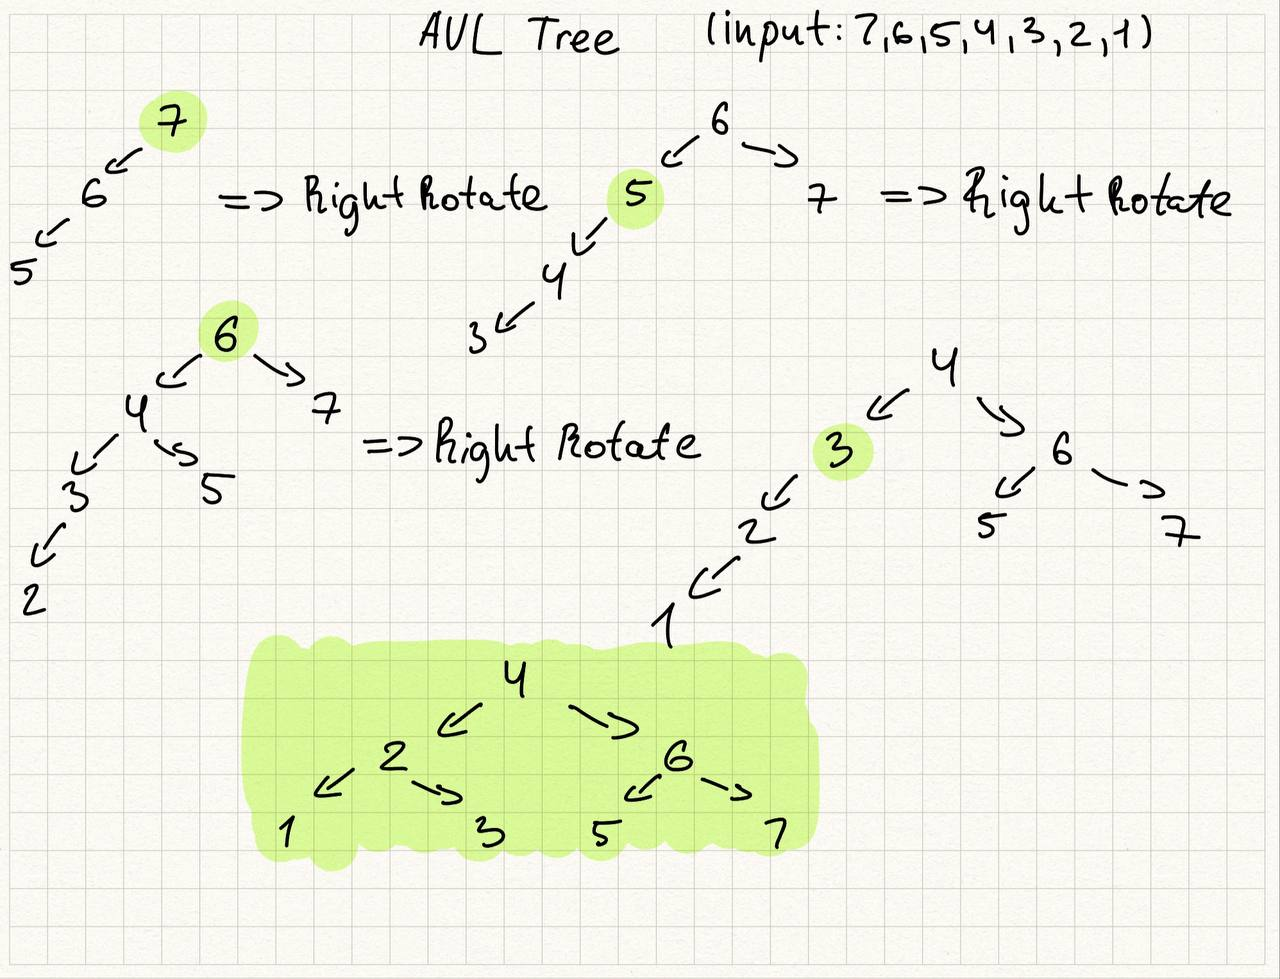 AVL Tree (input: 7,6,5,4,3,2,1)
7
6 => Right Rotate
5
6
5 7 => Right Rotate
4
3
6
4 7
3 5 => Right Rotate
2
4
3 6
2 5 7
1
4
2 6
1 3 5 7